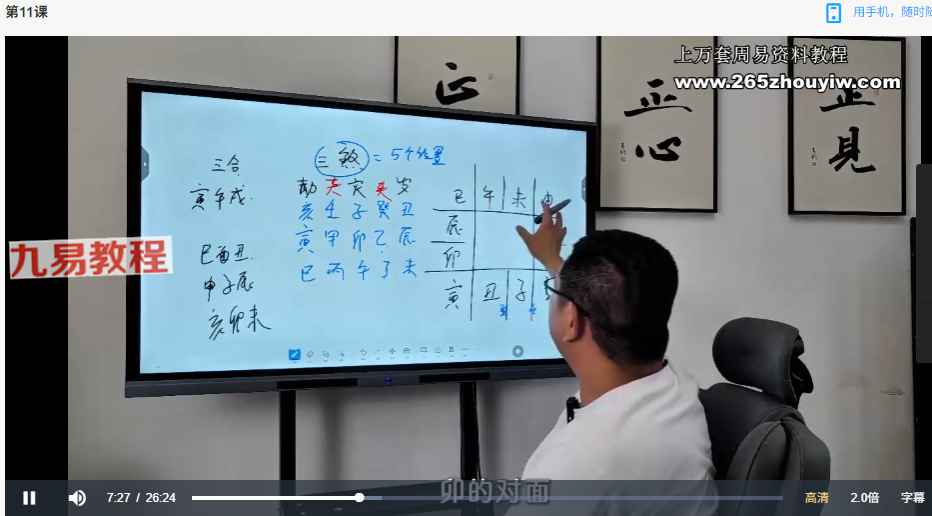 第11课
用手机，随时随
上万套周易资料教程
www.265zhouyiw.com
正
正心
正見
九易教程
三合
寅午戌
巳酉丑
申子辰
亥卯未
三煞 = 5个位置
劫 夹 灾 夹 岁
亥 壬 子 癸 丑
寅 甲 卯 乙 辰
巳 丙 午 丁 未
巳 午 未 申
辰
卯
寅 丑 子
卯的对面
7:27 / 26:24
高清
2.0倍
字幕